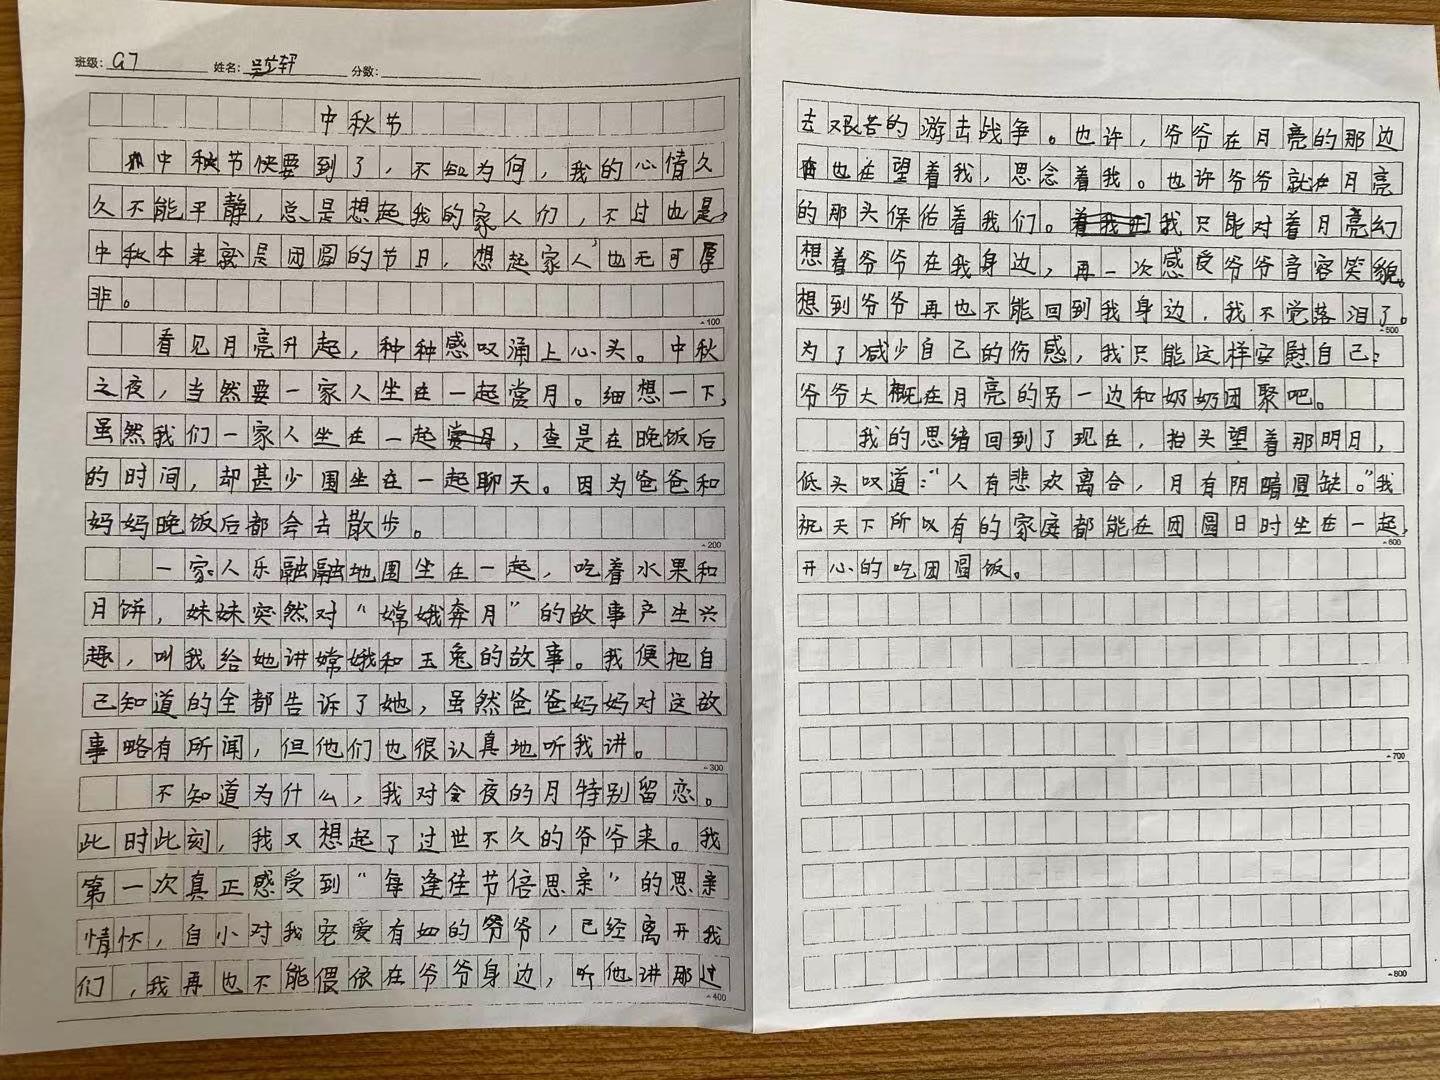 班级：G7 姓名：吴苙轩 分数：
中秋节
中秋节快要到了，不知为何，我的心情久
久不能平静，总是想起我的家人们，不过也是，
中秋本来就是团圆的节日，想起家人，也无可厚
非。
-100
看见月亮升起，种种感叹涌上心头。中秋
之夜，当然要一家人坐在一起赏月。细想一下，
虽然我们一家人坐在一起，查是在晚饭后
的时间，却甚少围坐在一起聊天。因为爸爸和
妈妈晚饭后都会去散步。
-200
一家人乐融融地围坐在一起，吃着水果和
月饼，妹妹突然对“嫦娥奔月”的故事产生兴
趣，叫我给她讲嫦娥和玉兔的故事。我便把自
己知道的全都告诉了她，虽然爸爸妈妈对这故
事略有所闻，但他们也很认真地听我讲。
-300
不知道为什么，我对今夜的月特别留恋。
此时此刻，我又想起了过世不久的爷爷来。我
第一次真正感受到“每逢佳节倍思亲”的思亲
情怀，自小对我宠爱有如的爷爷，已经离开我
们，我再也不能偎依在爷爷身边，听他讲那过
-400
去艰苦的游击战争。也许，爷爷在月亮的那边
也在望着我，思念着我。也许爷爷就在月亮
的那头保佑着我们。我只能对着月亮幻
想着爷爷在我身边，再一次感受爷爷音容笑貌。
想到爷爷再也不能回到我身边，我不觉落泪了。
-500
为了减少自己的伤感，我只能这样安慰自己：
爷爷大概在月亮的另一边和奶奶团聚吧。
我的思绪回到了现在，抬头望着那明月，
低头叹道：“人有悲欢离合，月有阴暗圆缺。”我
祝天下所以有的家庭都能在团圆日时坐在一起，
-600
开心的吃团圆饭。
-700
-800